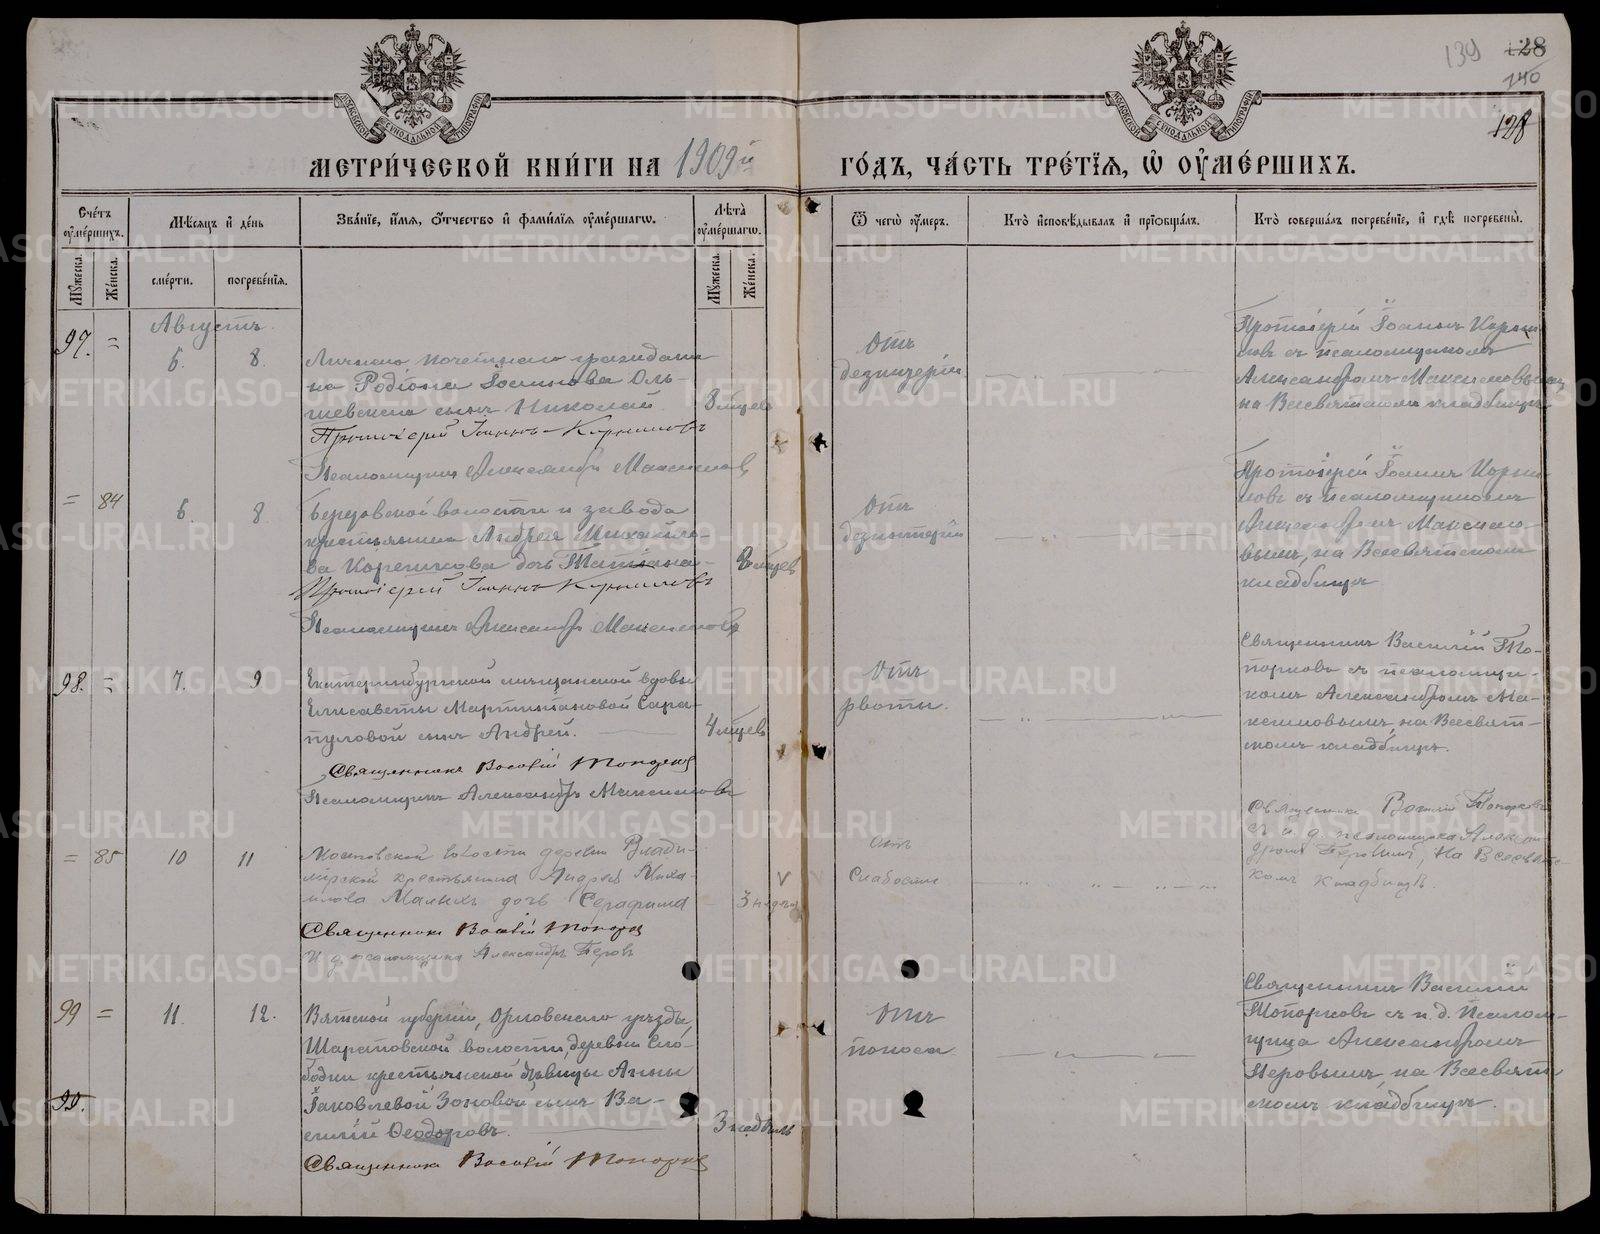 139 128
140
128
МОСКОВСКОЙ СѴНОДАЛЬНОЙ ТИПОГРАФІИ
МОСКОВСКОЙ СѴНОДАЛЬНОЙ ТИПОГРАФІИ
МЕТРИ́ЧЕСКОЙ КНИ́ГИ НА 1909й ГО́ДЪ, ЧА́СТЬ ТРЕ́ТЇѦ, Ѡ҆ ОУ҆МЕ́РШИХЪ.
Сче́тъ оу҆ме́ршихъ.
Мꙋ́жеска.
Же́нска.
Мѣ́сѧцъ и҆ де́нь
сме́рти.
погребе́нїѧ.
Зва́нїе, и҆́мѧ, ѻ҆́тчество и҆ фами́лїѧ оу҆ме́ршагѡ.
Лѣ́та оу҆ме́ршагѡ.
Мꙋ́жеска.
Же́нска.
Ѿ чегѡ̀ оу҆́меръ.
Кто̀ и҆сповѣ́дывалъ и҆ прїѡбща́лъ.
Кто̀ соверша́лъ погребе́нїе, и҆ гдѣ̀ погребены̀.
Августъ.
97. = 6. 8.
Личнаго почетнаго граждани-
на Родіона Іоаннова Оль-
шевскаго сынъ Николай
8 мѣцев
Протоіерей Іоаннъ Корниловъ
Псаломщикъ Александръ Максимовъ
Отъ
дезинтеріи
Протоіерей Іоаннъ Корни-
ловъ съ псаломщикомъ
Александромъ Максимовымъ,
на Всесвятскомъ кладбищѣ
= 84 6. 8
Березовской волости и завода
крестьянина Андрея Михайло-
ва Корешкова дочь Татіана
8 мѣцев
Протоіерей Іоаннъ Корниловъ
Псаломщикъ Александръ Максимовъ
Отъ
дезинтеріи
Протоіерей Іоаннъ Корни-
ловъ съ псаломщикомъ
Александромъ Максимо-
вымъ, на Всесвятскомъ
кладбищѣ
98. = 7. 9
Екатеринбургской мѣщанской вдовы
Елисаветы Мартиніановой Сара-
пуловой сынъ Андрей.
4 мѣцев
Священникъ Василій Топорковъ
Псаломщикъ Александръ Максимовъ
Отъ
рвоты.
Священникъ Василій То-
порковъ съ псаломщи-
комъ Александромъ Ма-
ксимовымъ, на Всесвят-
скомъ кладбищѣ.
= 85 10 11
Московской волости деревни Влади-
мірской крестьянина Андрея Миха-
илова Малыхъ дочь Серафима
3 недѣли
Священникъ Василій Топорковъ
И. д. псаломщика Александръ Перовъ
Отъ
Слабости
Священникъ Василій Топорковъ
съ и. д. псаломщика Алексан-
дромъ Перовымъ, на Всесвят-
скомъ кладбищѣ.
99 = 11. 12.
Вятской губерніи, Орловскаго уѣзда,
волости, деревни Сло-
бодки крестьянской дѣвицы Анны
Іаковлевой Зоновой сынъ Ва-
силій Ѳеодоровъ.
3 недѣль
99.
Священникъ Василій Топорковъ
Отъ
поноса
Священникъ Василій
Топорковъ съ и. д. Псалом-
щика Александромъ
Перовымъ, на Всесвят-
скомъ кладбищѣ.
METRIKI.GASO-URAL.RU